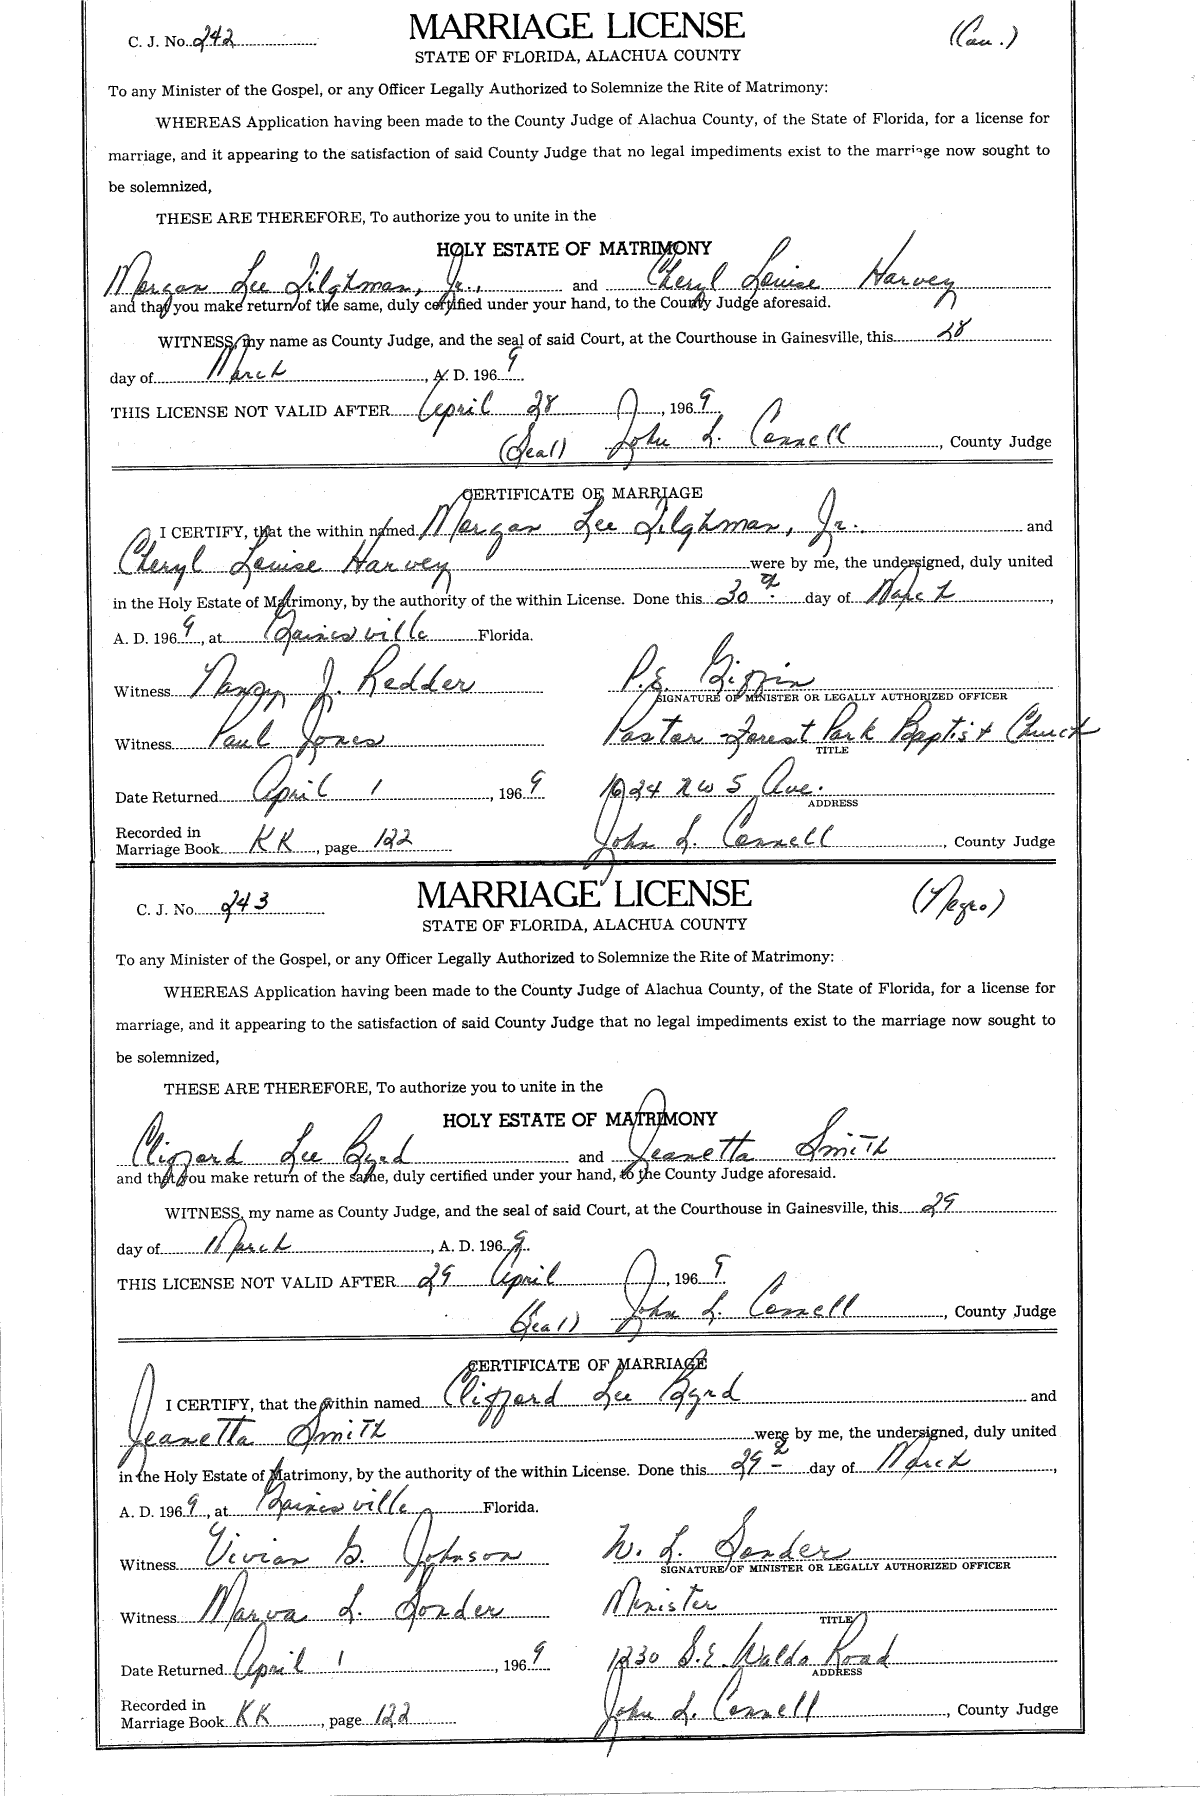 C. J. No. 242 MARRIAGE LICENSE (Cau.)
STATE OF FLORIDA, ALACHUA COUNTY
To any Minister of the Gospel, or any Officer Legally Authorized to Solemnize the Rite of Matrimony:
WHEREAS Application having been made to the County Judge of Alachua County, of the State of Florida, for a license for
marriage, and it appearing to the satisfaction of said County Judge that no legal impediments exist to the marriage now sought to
be solemnized,
THESE ARE THEREFORE, To authorize you to unite in the
HOLY ESTATE OF MATRIMONY
Morgan Lee Tilghman, Jr., and Cheryl Louise Harvey
and that you make return of the same, duly certified under your hand, to the County Judge aforesaid.
WITNESS, my name as County Judge, and the seal of said Court, at the Courthouse in Gainesville, this 28
day of March, A. D. 1969
THIS LICENSE NOT VALID AFTER April 28, 1969
(Seal) John L. Connell, County Judge
CERTIFICATE OF MARRIAGE
I CERTIFY, that the within named Morgan Lee Tilghman, Jr. and
Cheryl Louise Harvey were by me, the undersigned, duly united
in the Holy Estate of Matrimony, by the authority of the within License. Done this 30th day of March,
A. D. 1969, at Gainesville Florida.
Witness Nancy J. Redder P.E.
SIGNATURE OF MINISTER OR LEGALLY AUTHORIZED OFFICER
Witness Paul Jones Pastor - Forest Park Baptist Church
TITLE
Date Returned April 1, 1969 1624 NW 5 Ave.
ADDRESS
Recorded in
Marriage Book KK, page 122 John L. Connell, County Judge
C. J. No. 243 MARRIAGE LICENSE (Negro)
STATE OF FLORIDA, ALACHUA COUNTY
To any Minister of the Gospel, or any Officer Legally Authorized to Solemnize the Rite of Matrimony:
WHEREAS Application having been made to the County Judge of Alachua County, of the State of Florida, for a license for
marriage, and it appearing to the satisfaction of said County Judge that no legal impediments exist to the marriage now sought to
be solemnized,
THESE ARE THEREFORE, To authorize you to unite in the
HOLY ESTATE OF MATRIMONY
Clifford Lee Byrd and Jeanetta Smith
and that you make return of the same, duly certified under your hand, to the County Judge aforesaid.
WITNESS, my name as County Judge, and the seal of said Court, at the Courthouse in Gainesville, this 29
day of March, A. D. 1969.
THIS LICENSE NOT VALID AFTER 29 April, 1969
(Seal) John L. Connell, County Judge
CERTIFICATE OF MARRIAGE
I CERTIFY, that the within named Clifford Lee Byrd and
Jeanetta Smith were by me, the undersigned, duly united
in the Holy Estate of Matrimony, by the authority of the within License. Done this 29th day of March,
A. D. 1969, at Gainesville Florida.
Witness Vivian G. Johnson W. L. Sonder
SIGNATURE OF MINISTER OR LEGALLY AUTHORIZED OFFICER
Witness Marva L. Sonder Minister
TITLE
Date Returned April 1, 1969 1230 S.E. Waldo Road
ADDRESS
Recorded in
Marriage Book KK, page 122 John L. Connell, County Judge